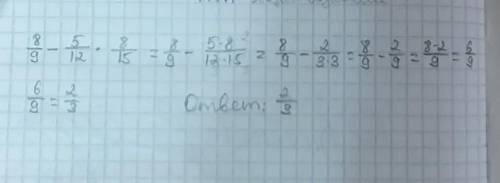 8/9 - 5/12 · 8/15 = 8/9 - 5·8/12·15 = 8/9 - 2/3·3 = 8/9 - 2/9 = 8-2/9 = 6/9
6/9 = 2/3 Ответ: 2/3